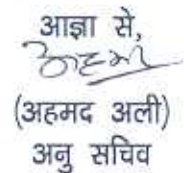 आज्ञा से,
(अहमद अली)
अनु सचिव